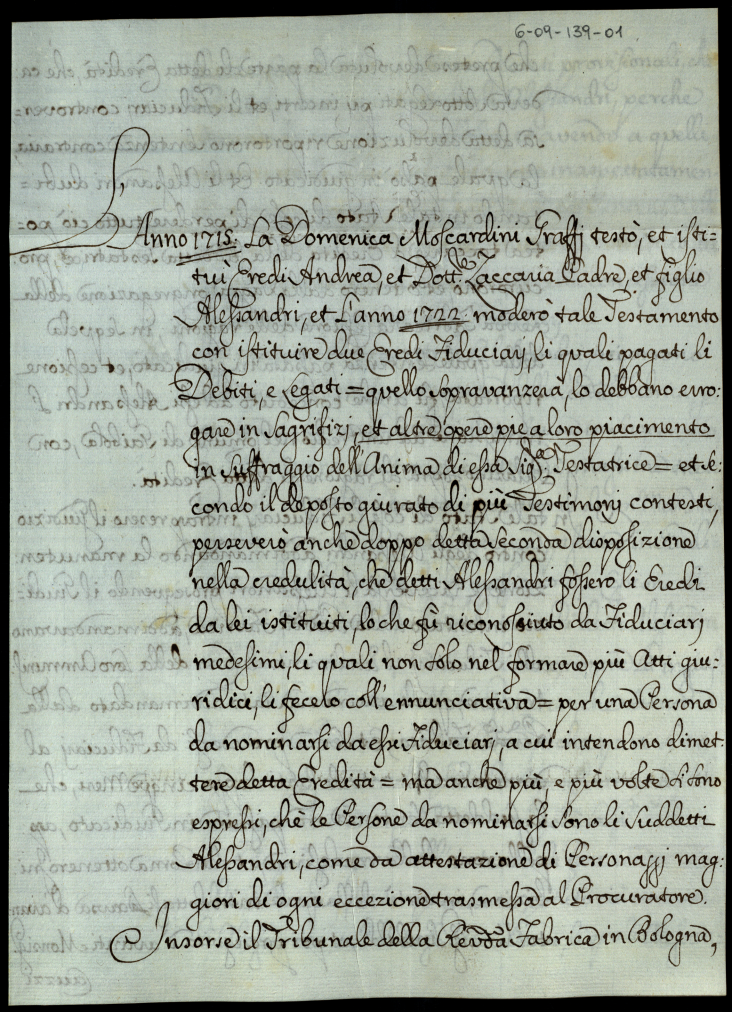 6-09-139-01
L'Anno 1715. La Domenica Moscardini Graffi testò, et isti=
tuì Eredi Andrea, et Dott.re Zaccaria Padre, et figlio
Alessandri, et l'anno 1722. moderò tale Testamento
con istituire due Eredi Fiduciarj, li quali pagati li
Debiti, e Legati = quello sopravanzerà, lo debbano ero:
gare in Sagrifizj, et altre opere pie a loro piacimento
in suffraggio dell'Anima di essa Sig.ra Testatrice = et se:
condo il deposto giurato di più Testimonj contesti,
perseverò anche doppo detta seconda disposizione
nella credulità, che detti Alessandri fossero li Eredi
da lei istituiti, lo che fù riconossiuto da Fiduciarj
medesimi, li quali non solo nel formare più Atti giu:
ridici, li fecero coll'ennunciativa = per una Persona
da nominarsi da essi Fiduciarj, a cui intendono dimet=
tere detta Eredità = ma anche più, e più volte si sono
espressi, che le Persone da nominarsi sono li suddetti
Alessandri, come da attestazione di Personaggi mag:
giori di ogni eccezione trasmessa al Procuratore.
Insorse il Tribunale della Rev.da Fabrica in Bologna,